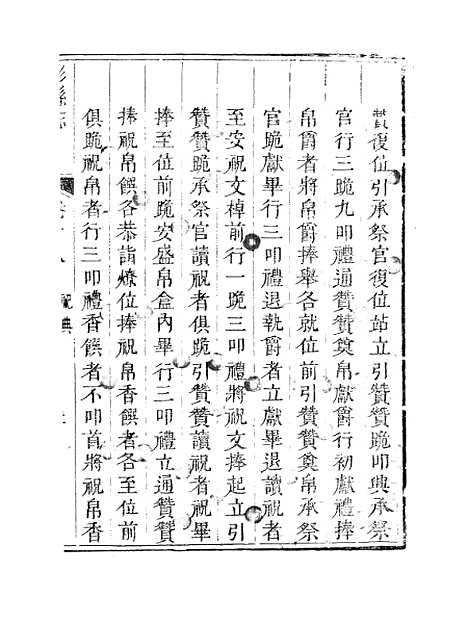 贊復位引承祭官復位站立引贊贊跪叩興承祭
官行三跪九叩禮通贊贊奠帛獻爵行初獻禮捧
帛爵者將帛爵捧舉各就位前引贊贊奠帛承祭
官跪獻畢行三叩禮退執爵者立獻畢退讀祝者
至安祝文棹前行一跪三叩禮將祝文捧起立引
贊贊跪承祭官讀祝者俱跪引贊贊讀祝者祝畢
捧至位前跪安盛帛盒內畢行三叩禮立通贊贊
捧祝帛饌各恭詣燎位捧祝帛香饌者各至位前
俱跪祝帛者行三叩禮香饌者不叩首將祝帛香
縣志
典